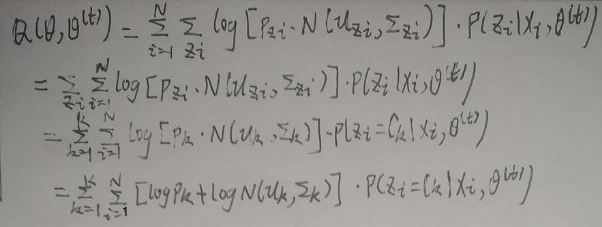 Q(θ,θ^(t)) = Σ_{i=1}^{N} Σ_{Zi} log[P_{Zi}·N(μ_{Zi},Σ_{Zi})]·P(Zi|Xi,θ^(t))
= Σ_{Zi} Σ_{i=1}^{N} log[P_{Zi}·N(μ_{Zi},Σ_{Zi})]·P(Zi|Xi,θ^(t))
= Σ_{k=1}^{K} Σ_{i=1}^{N} log[P_k·N(μ_k,Σ_k)]·P(Zi=C_k|Xi,θ^(t))
= Σ_{k=1}^{K} Σ_{i=1}^{N} [logP_k+logN(μ_k,Σ_k)]·P(Zi=C_k|Xi,θ^(t))